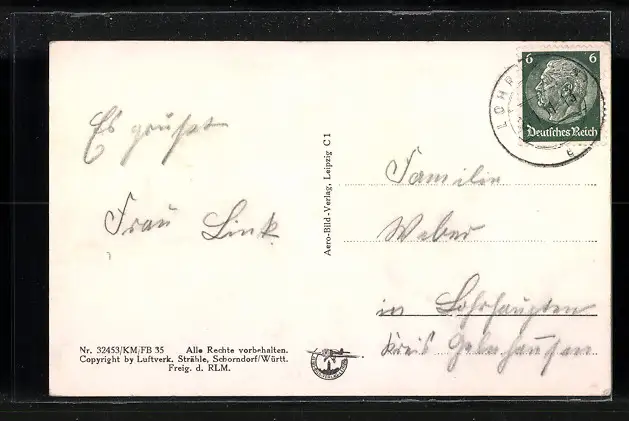 Es grüßt
Frau Link
Nr. 32453/KM/FB 35 Alle Rechte vorbehalten.
Copyright by Luftverk. Strähle, Schorndorf/Württ.
Freig. d. RLM.
Aero-Bild-Verlag, Leipzig C 1
6 6
Deutsches Reich
LOHR
Familie
Weber
in Lohrhaupten
Kreis Gelnhausen